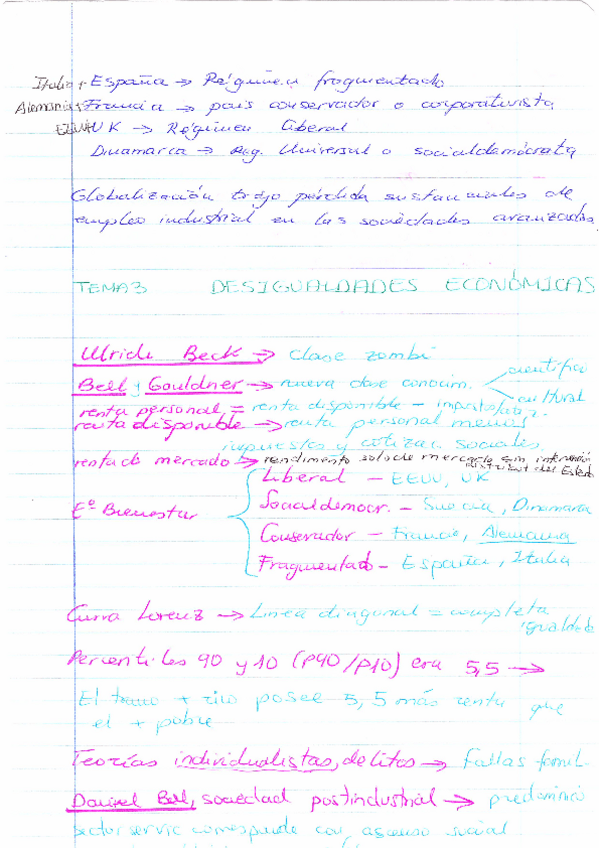 Italia + España → Régimen fragmentado
Alemania + Francia → país conservador o corporativista
EEUU UK → Régimen liberal
Dinamarca → Reg. Universal o socialdemócrata
Globalización trajo pérdida sustanciales de
empleo industrial en las sociedades avanzadas,
TEMA 3 DESIGUALDADES ECONÓMICAS
Ulrich Beck → Clase zombi
Bell y Gouldner → nueva clase conocim. científico
cultural
renta personal = renta disponible -
renta disponible → renta personal menos
impuestos y cotizac. sociales
renta de mercado → rendimento solo de mercado sin intervención
distribut del Estado
Eº Bienestar
Liberal - EEUU, UK
Socialdemocr. - Suecia, Dinamarca
Conservador - Francia, Alemania
Fragmentado - España, Italia
Curva Lorenz → Linea diagonal = completa
igualdad
Percentiles 90 y 10 (P90/P10) era 5,5 →
El tramo + rico posee 5,5 más renta que
el + pobre
Teorías individualistas, delitos → Fallas famil.
Daniel Bell, sociedad postindustrial → predominio
sector servic corresponde con ascenso social